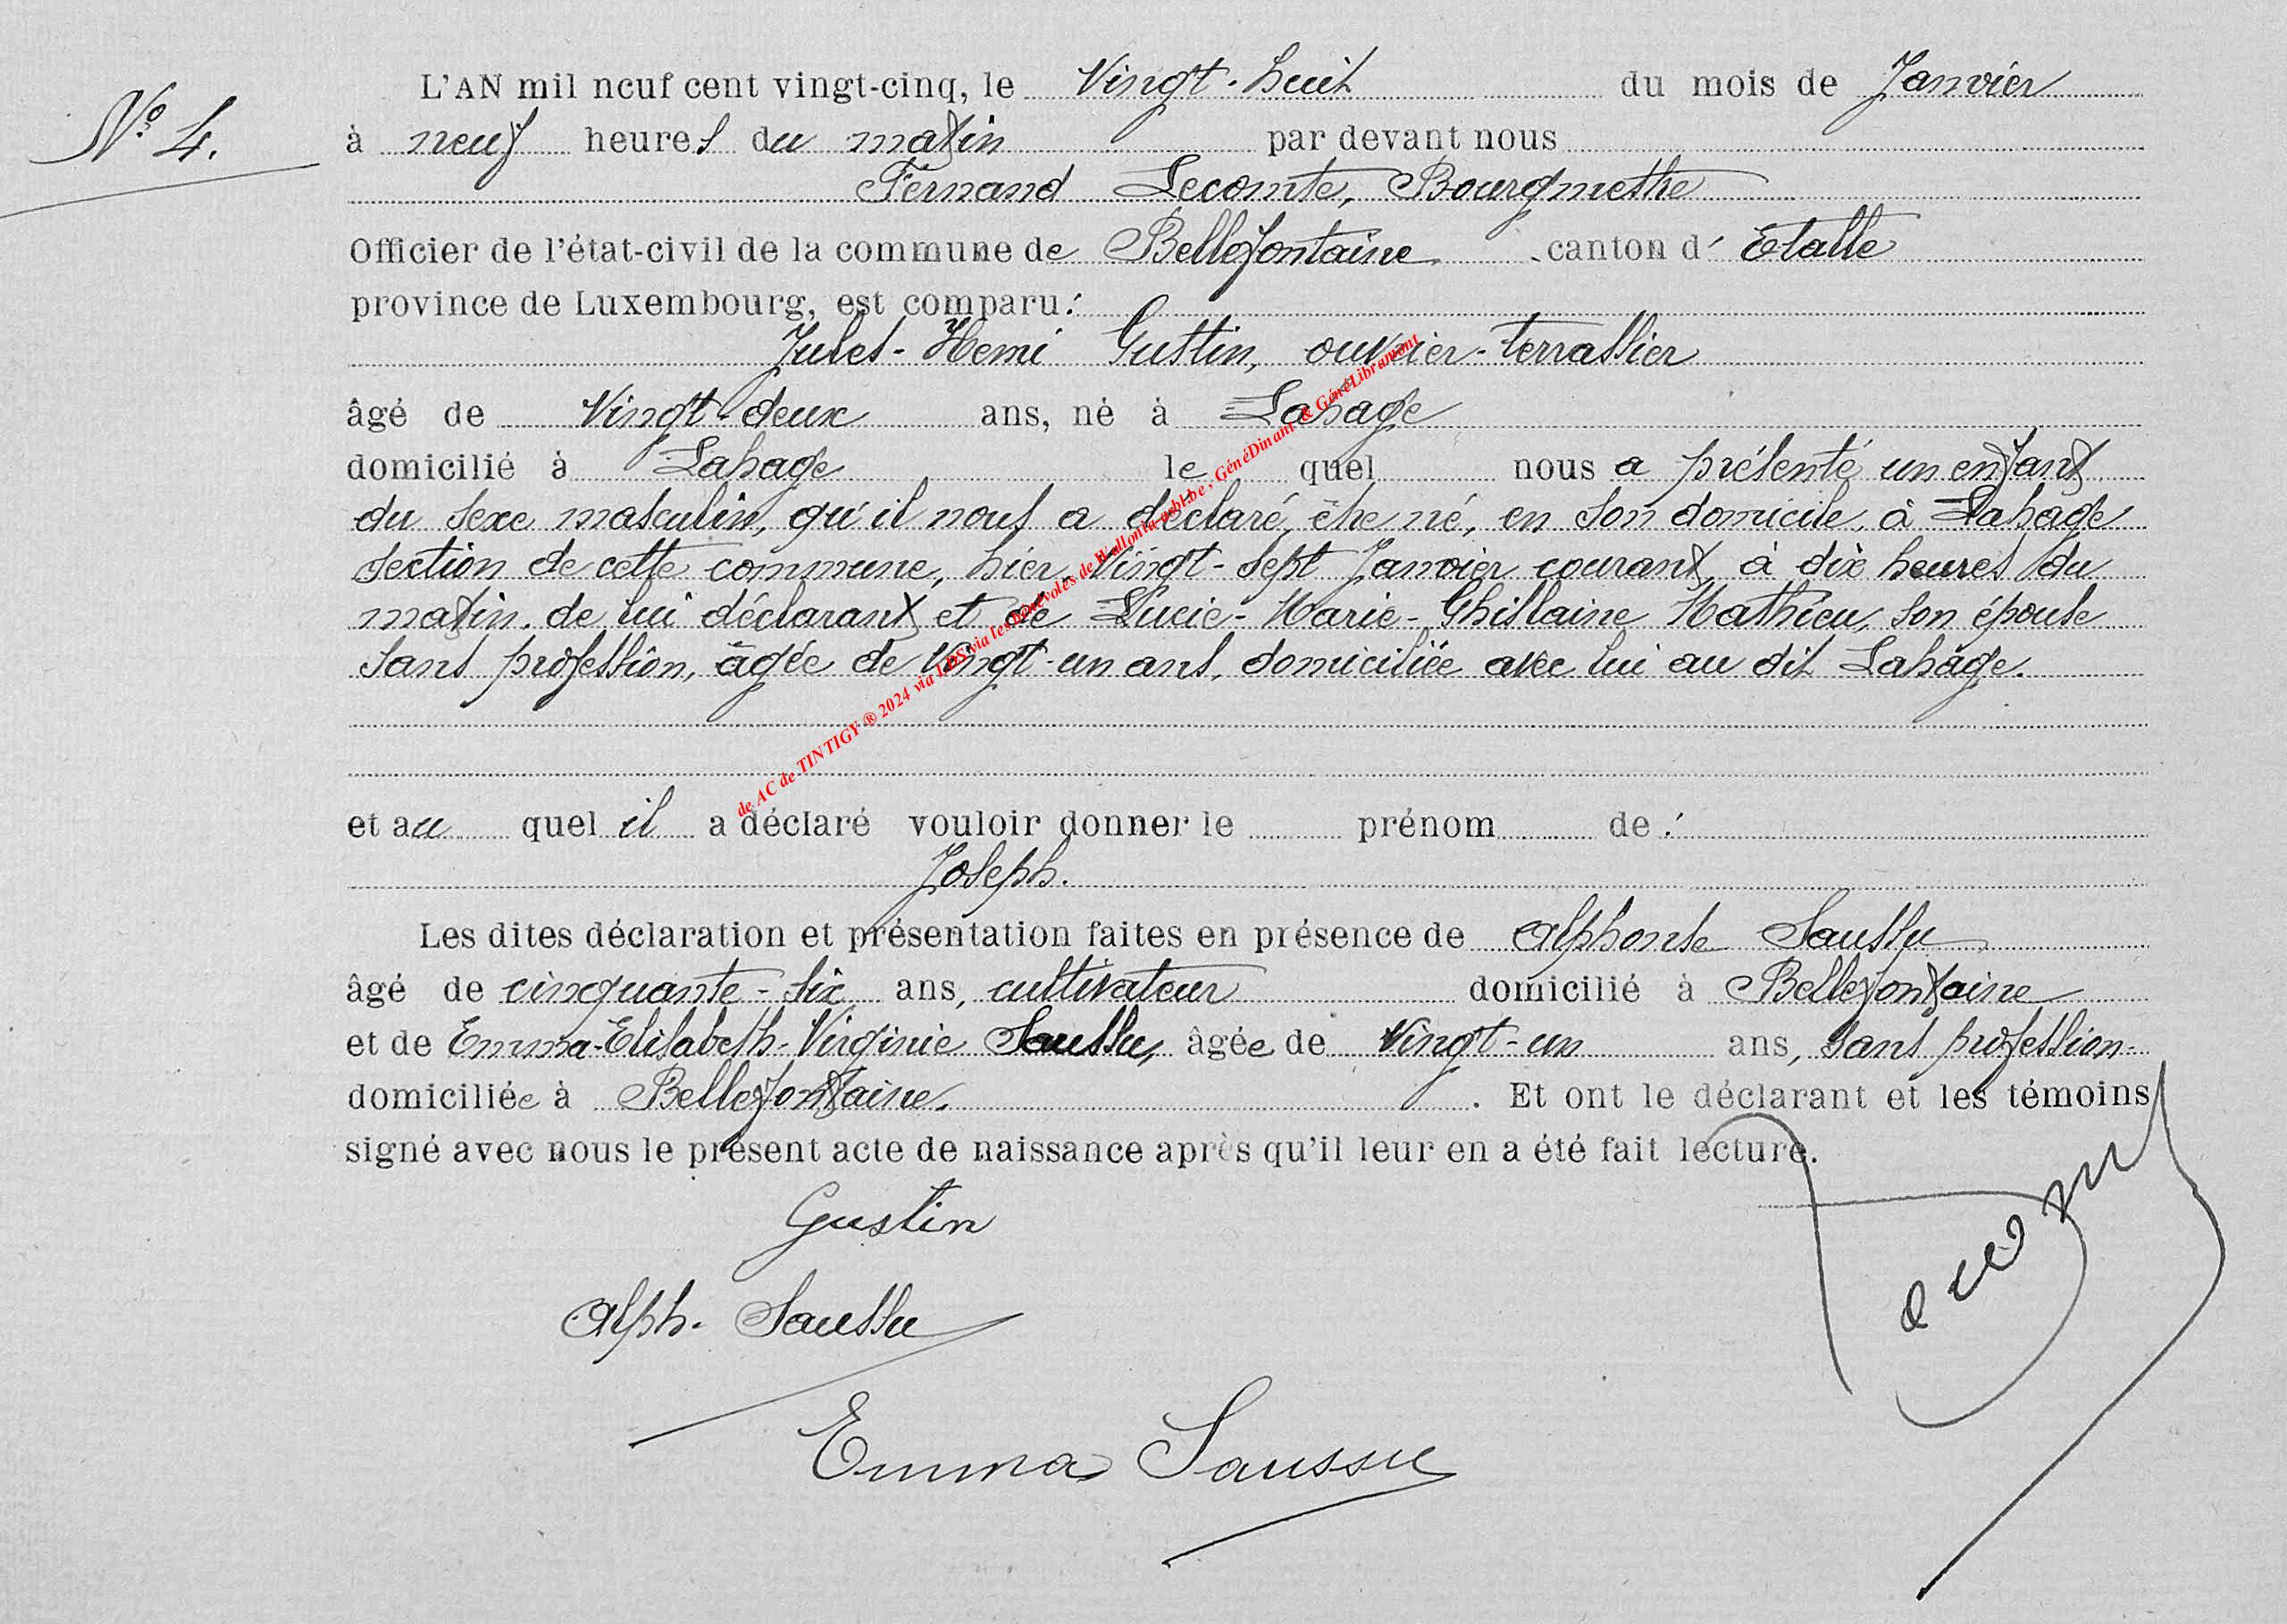 N° 4.
L'AN mil neuf cent vingt-cinq, le Vingt-huit du mois de Janvier
à neuf heures du matin par devant nous
Fernand Lecomte, Bourgmestre
Officier de l'état-civil de la commune de Bellefontaine canton d' Etalle
province de Luxembourg, est comparu :
Jules-Henri Gustin, ouvrier-terrassier
âgé de Vingt-deux ans, né à Lahage
domicilié à Lahage le quel nous a présenté un enfant
du sexe masculin, qu'il nous a déclaré, être né, en son domicile, à Lahage
section de cette commune, hier, Vingt-sept Janvier courant, à dix heures du
matin, de lui déclarant et de Lucie-Marie-Ghislaine Mathieu, son épouse
sans profession, âgée de Vingt-un ans, domiciliée avec lui au dit Lahage.
et au quel il a déclaré vouloir donner le prénom de :
Joseph.
Les dites déclaration et présentation faites en présence de Alphonse Saussu
âgé de cinquante-six ans, cultivateur domicilié à Bellefontaine
et de Emma-Elisabeth-Virginie Saussu, âgée de Vingt-un ans, sans profession-
domiciliée à Bellefontaine. . Et ont le déclarant et les témoins
signé avec nous le présent acte de naissance après qu'il leur en a été fait lecture.
Gustin
Alph. Saussu
Emma Saussu
de AC de TINTIGY ® 2024 via LDS via les bénévoles de Wallonia-asbl.be, GénéDinant & GénéLibramont